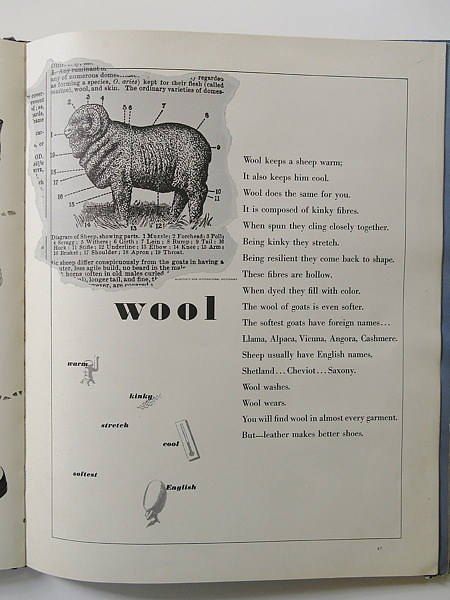 1. Any ruminant
any of numerous domes
regarded
as forming a species, O. aries) kept for their flesh (called
mutton), wool, and skin. The ordinary varieties of domes-
Diagram of Sheep, showing parts. 1 Muzzle; 2 Forehead; 3 Poll;
4 Scragg; 5 Withers; 6 Girth; 7 Loin; 8 Rump; 9 Tail; 10
Hock; 11 Stifle; 12 Underline; 13 Elbow; 14 Knee; 15 Arm;
16 Brisket; 17 Shoulder; 18 Apron; 19 Throat.
sheep differ conspicuously from the goats in having a
less agile build, no beard in the male
horns (often in old males curled
longer tail, and fine,
wool
warm
kinky
stretch
cool
softest
English
Wool keeps a sheep warm;
It also keeps him cool.
Wool does the same for you.
It is composed of kinky fibres.
When spun they cling closely together.
Being kinky they stretch.
Being resilient they come back to shape.
These fibres are hollow.
When dyed they fill with color.
The wool of goats is even softer.
The softest goats have foreign names...
Llama, Alpaca, Vicuna, Angora, Cashmere.
Sheep usually have English names,
Shetland... Cheviot... Saxony.
Wool washes.
Wool wears.
You will find wool in almost every garment.
But—leather makes better shoes.